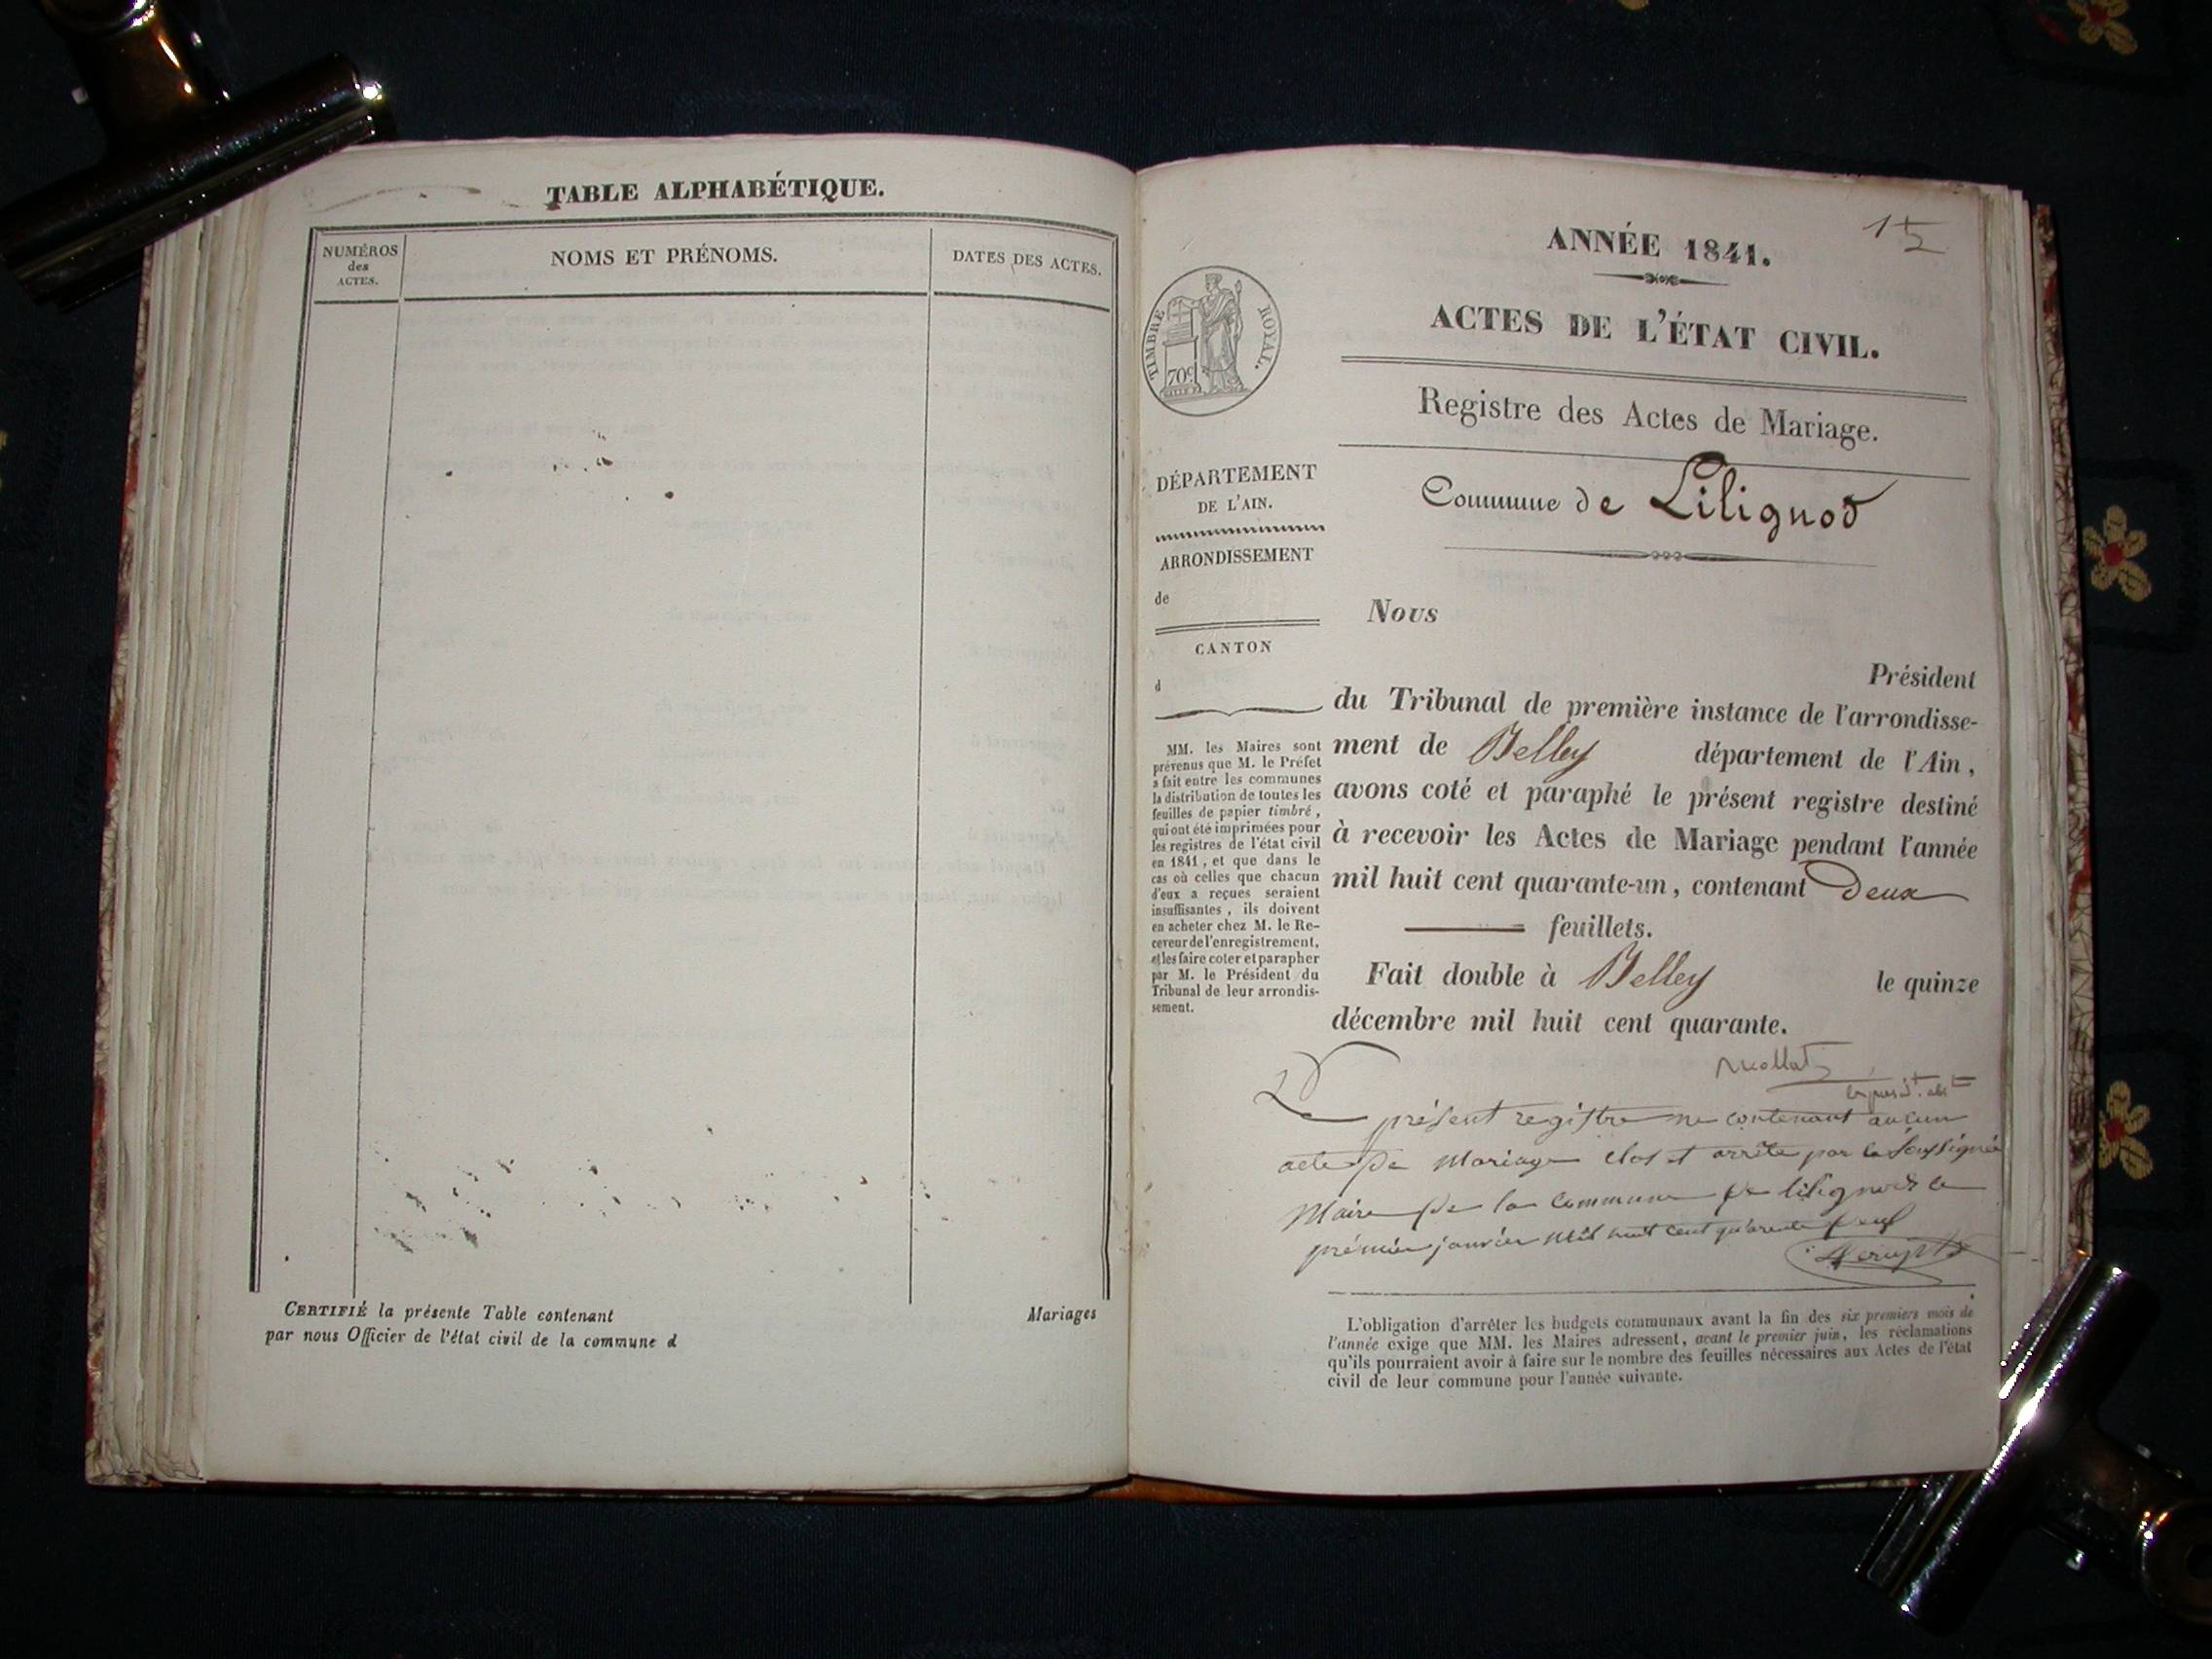 TABLE ALPHABÉTIQUE.
NUMÉROS
des
ACTES.
NOMS ET PRÉNOMS.
DATES DES ACTES.
CERTIFIÉ la présente Table contenant Mariages
par nous Officier de l'état civil de la commune d
1 2
ANNÉE 1841.
ACTES DE L'ÉTAT CIVIL.
TIMBRE ROYAL.
70c
Registre des Actes de Mariage.
Commune de Lilignod
DÉPARTEMENT
DE L'AIN.
ARRONDISSEMENT
de
CANTON
d
MM. les Maires sont
prévenus que M. le Préfet
a fait entre les communes
la distribution de toutes les
feuilles de papier timbré,
qui ont été imprimées pour
les registres de l'état civil
en 1841, et que dans le
cas où celles que chacun
d'eux a reçues seraient
insuffisantes, ils doivent
en acheter chez M. le Re-
ceveur de l'enregistrement,
et les faire coter et parapher
par M. le Président du
Tribunal de leur arrondis-
sement.
Nous
Président
du Tribunal de première instance de l'arrondisse-
ment de Belley département de l'Ain,
avons coté et paraphé le présent registre destiné
à recevoir les Actes de Mariage pendant l'année
mil huit cent quarante-un, contenant Deux
feuillets.
Fait double à Belley le quinze
décembre mil huit cent quarante.
Le présent registre ne contenant aucun
acte de Mariage clos et arrêté par le Soussigné
Maire de la commune de lilignod le
prémier janvier mil huit cent quarante deux
L'obligation d'arrêter les budgets communaux avant la fin des six premiers mois de
l'année exige que MM. les Maires adressent, avant le premier juin, les réclamations
qu'ils pourraient avoir à faire sur le nombre des feuilles nécessaires aux Actes de l'état
civil de leur commune pour l'année suivante.